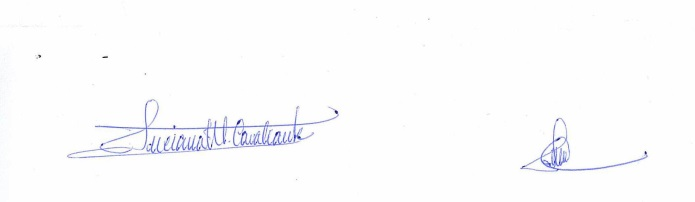 Luciana M. Cavalcante